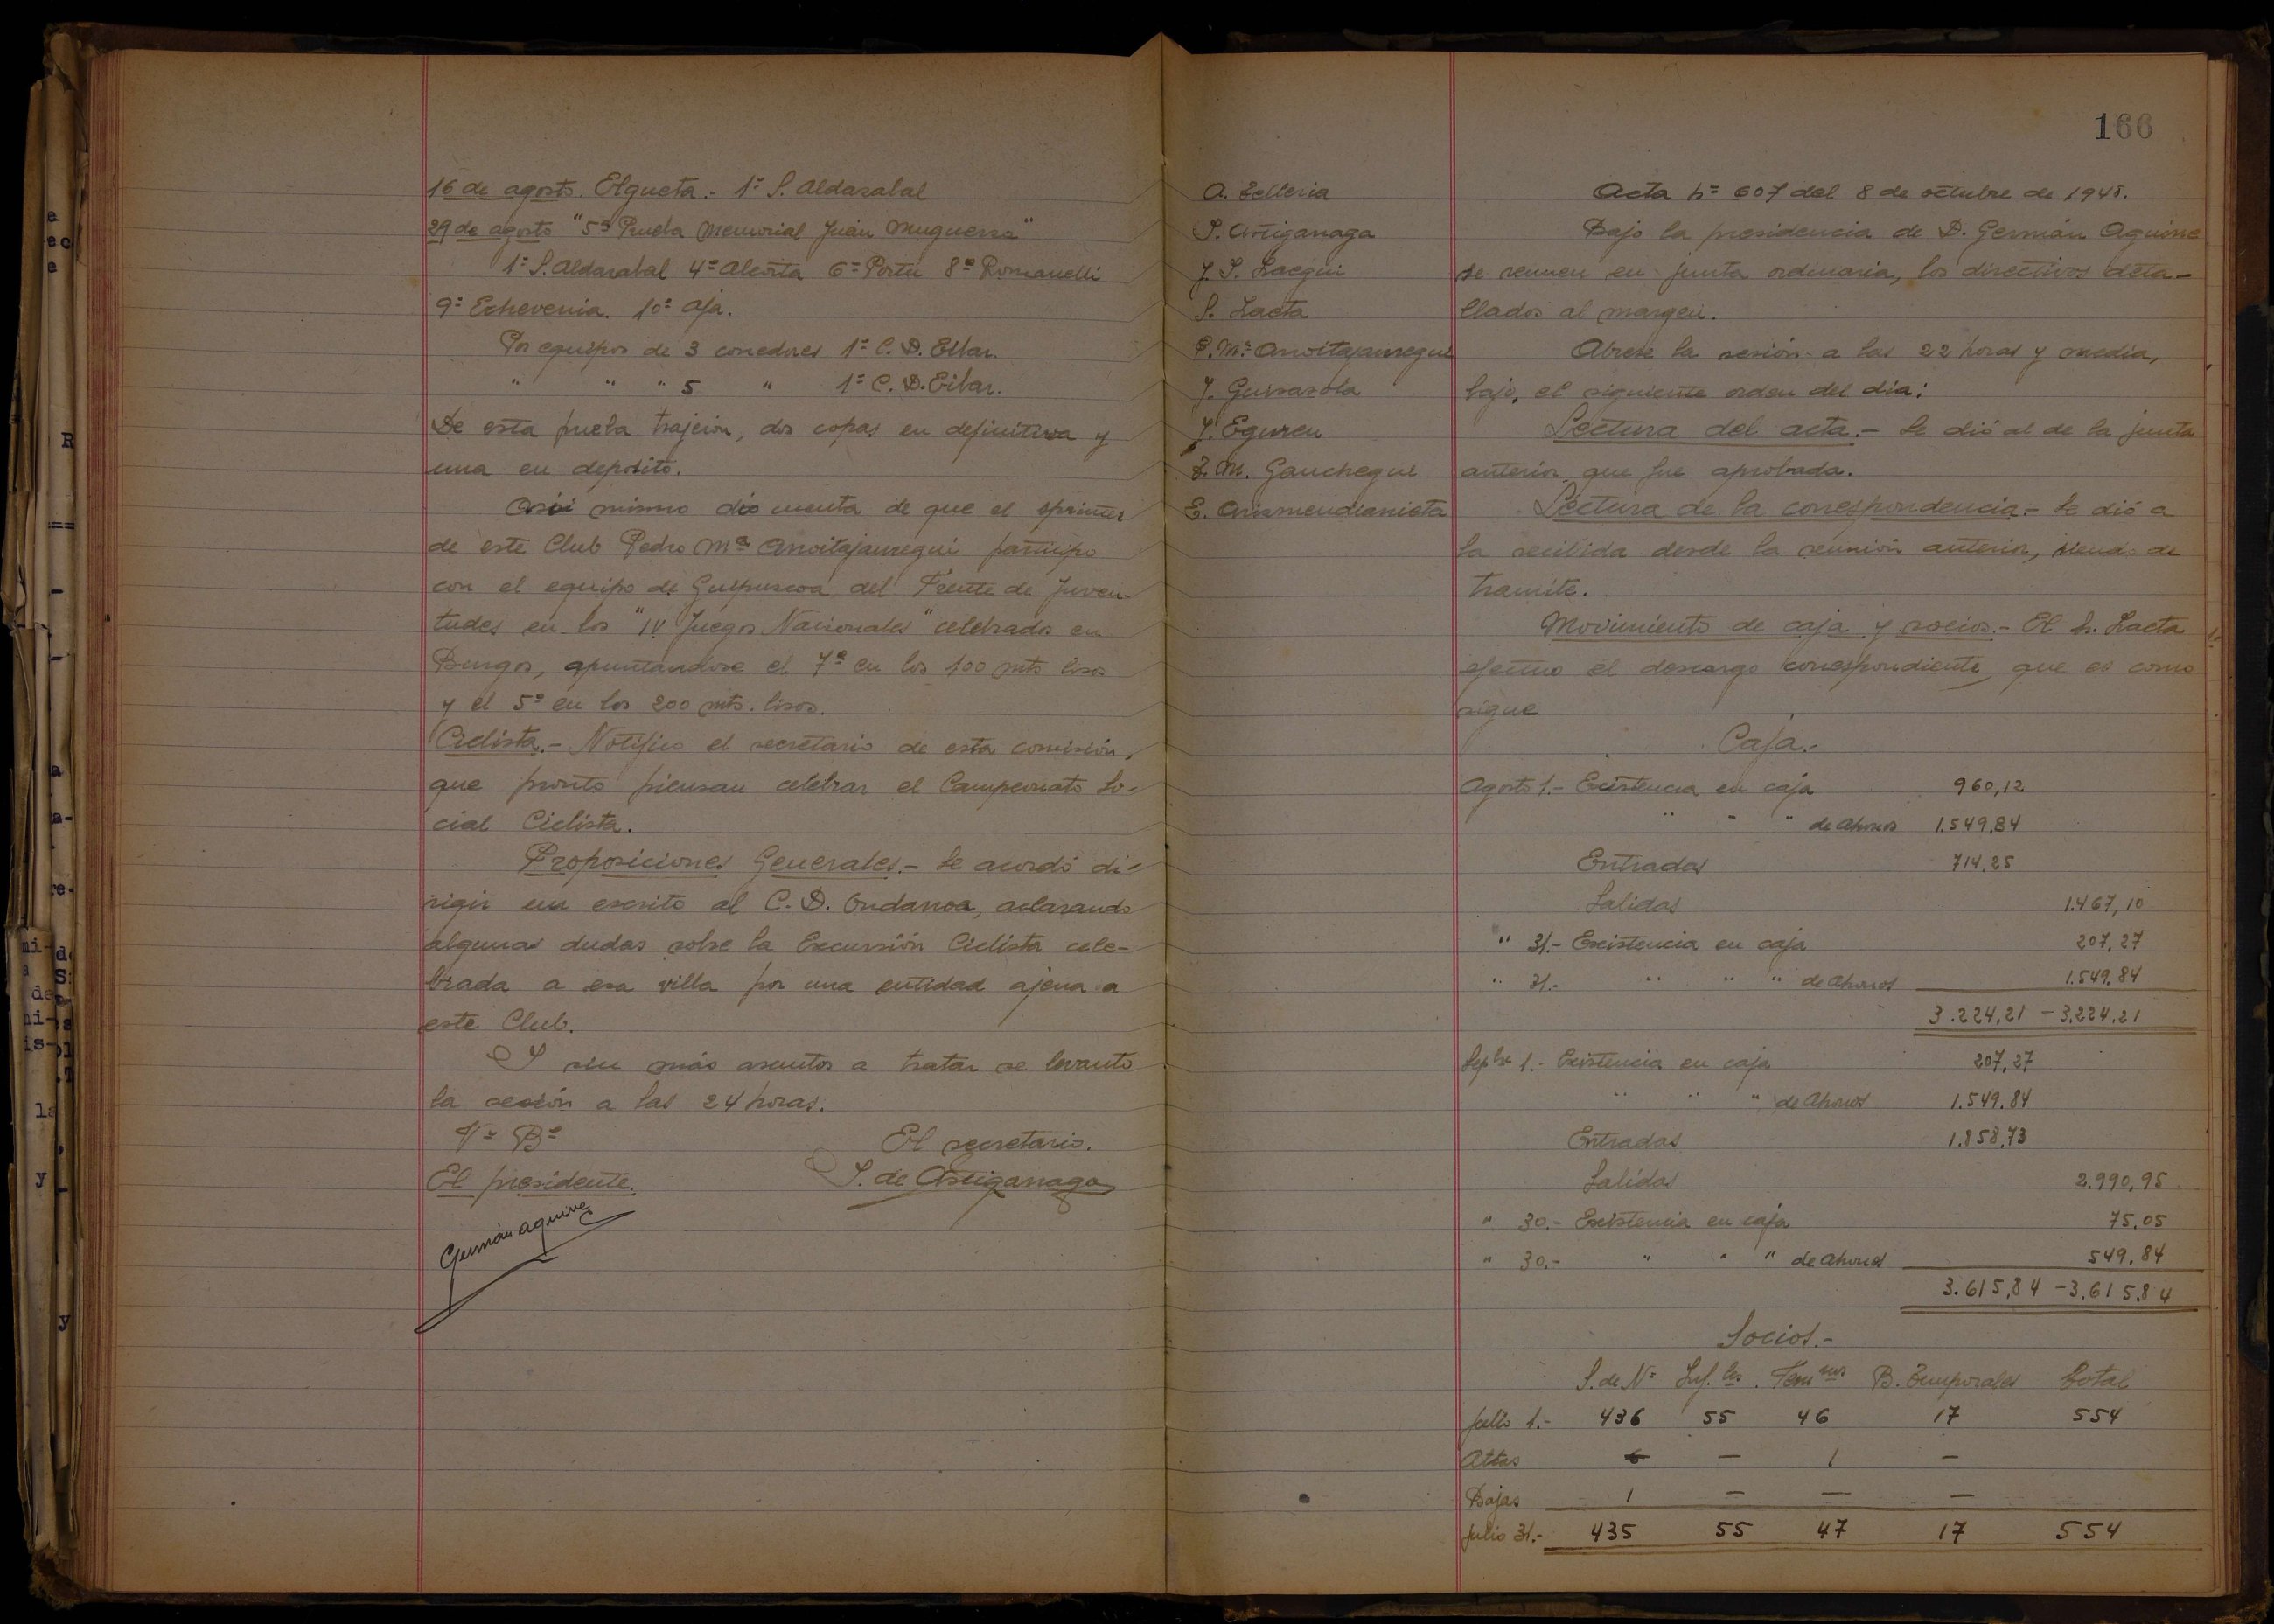 16 de agosto. Elgueta.- 1º S. Aldazabal
29 de agosto "5ª Prueba Memorial Juan Muguerza"
1º S. Aldazabal 4º Alcorta 6º Portu 8º Romanelli
9º Echeverria. 10º Aja.
Por equipos de 3 corredores 1º C. D. Eibar.
" " " 5 " 1º C. D. Eibar.
De esta prueba trajeron, dos copas en definitiva y
una en deposito.
Asi mismo dio cuenta de que el sprinter
de este Club Pedro Mª Arroitajauregui participo
con el equipo de Guipuzcoa del Frente de Juven-
tudes en los "IV Juegos Nacionales" celebrado en
Burgos, apuntandose el 7º en los 100 mts lisos
y el 5º en los 200 mts. lisos.
Ciclista.- Notifico el secretario de esta comisión,
que pronto piensan celebrar el Campeonato So-
cial Ciclista.
Proposiciones Generales.- Se acordó di-
rigir un escrito al C. D. Ondarroa, aclarando
algunas dudas sobre la Excursión Ciclista cele-
brada a esa villa por una entidad ajena a
este Club.
Y sin más asuntos a tratar se levanto
la sesión a las 24 horas.
Vº Bº El secretario.
El presidente. S. de Artiganaga
Germán Aguirre
166
A. Telleria
S. Artiganaga
J. S.
S. Lacta
P. Mª Arroitajauregui
J. Guisasola
J. Eguren
J. M. Ganchegui
E. Arizmendiarrieta
Acta nº 607 del 8 de octubre de 1948.
Bajo la presidencia de D. Germán Aguirre
se reunen en junta ordinaria, los directivos deta-
llados al margen.
Abrese la sesión a las 22 horas y media,
bajo, el siguiente orden del dia:
Lectura del acta.- Se dió al de la junta
anterior que fue aprobada.
Lectura de la correspondencia.- Se dió a
la recibida desde la reunión anterior, siendo de
tramite.
Movimiento de caja y socios.- El Sr. Lacta
efectuo el descargo correspondiente que es como
sigue
Caja.-
Agosto 1.- Existencia en caja 960,12
" " " de Ahorros 1.549,84
Entradas 714,25
Salidas 1.467,10
" 31.- Existencia en caja 207,27
" 31.- " " " de Ahorros 1.549.84
3.224,21 - 3.224.21
Sepbre 1.- Existencia en caja 207,27
" " " de Ahorros 1.549.84
Entradas 1.858,73
Salidas 2.990,95
" 30.- Existencia en caja 75.05
" 30.- " " " de Ahorros 549.84
3.615,84 - 3.615.84
Socios.-
S. de Nº Inf.les. Femnos B. Temporales Total
Julio 1.- 436 55 46 17 554
Altas — — 1 —
Bajas 1 — — —
Julio 31.- 435 55 47 17 554